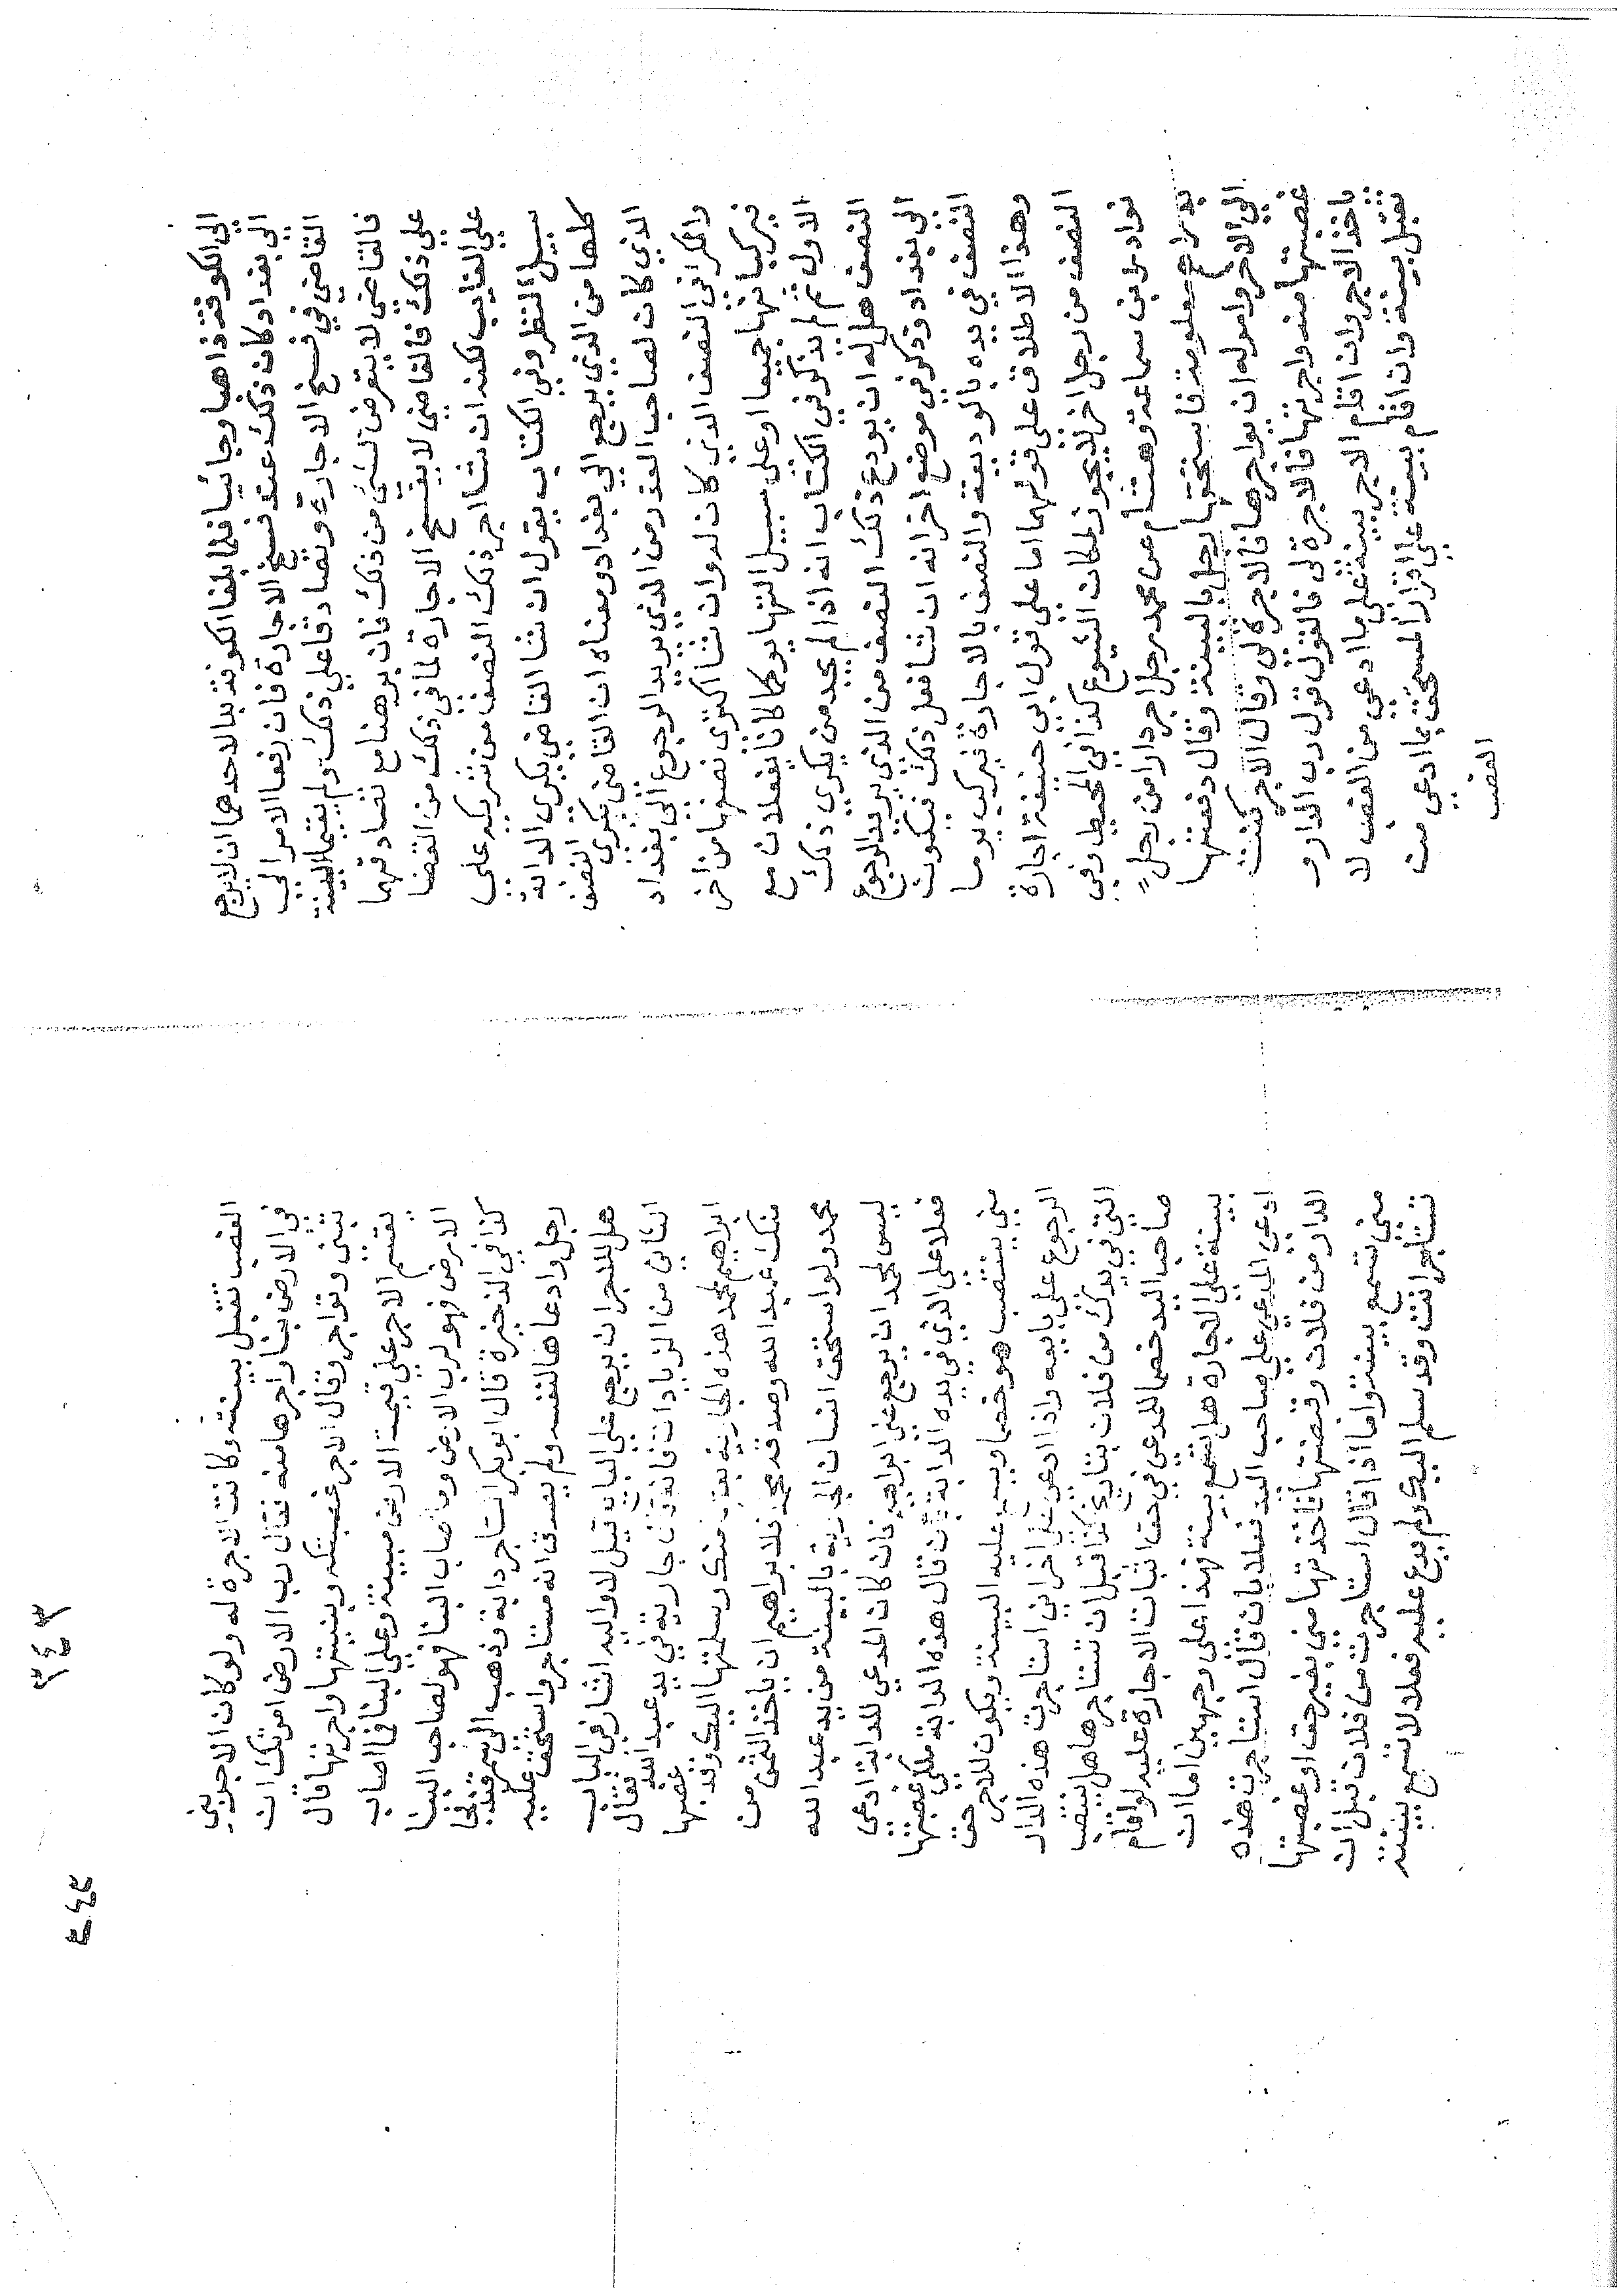 الى الكوفة ذاهبا وجائيا فلما بلغا الكوفة بدا لاحدهما ان لا يرجع
الى بغداد كان ذلك عذر فسخ الاجارة فان رفعا الامر الى
القاضي في فسخ الاجارة وتصادقا على ذلك ولم يقيما البينة
فالقاضي لا يتعرض لشئ من ذلك فان برهنا مع تصادقهما
على ذلك فالقاضي لا يفسخ الاجارة لما في ذلك من القضا
على الغايب لكنه ان شا اجر ذلك النصف من شريكه على
سبيل النظر وفي الكتاب يقول ان شا القاضي يكري الدابة
كلها من الذي يرجع الى بغداد ومعناه ان القاضي يكري النصف
الذي كان لصاحب العذر من الذي يريد الرجوع الى بغداد
والكرا في النصف الذي كان له وان شا اكترى نصفها من اخر
فيركبانها جميعا او على سبيل التهايو كما كانا يفعلان مع
الاول ثم لم يذكر في الكتاب انه اذا لم يجد من يكري ذلك
النصف هل له ان يودع ذلك النصف من الذي يريد الرجوع
الى بغداد وذكر في موضع اخر انه ان شا فعل ذلك فيكون
النصف في يده بالوديعة والنصف بالاجارة فيركب يوما
وهذا الاطلاق على قولهما اما على قول ابي حنيفة اجارة
النصف من رجل اخر لا يجوز لمكان الشيوع كذا في المحيط وفي
نوادر ابن سماعة وهشام عن محمد رجل اجر دارا من رجل
بدراهم معلومة فاستحقها رجل بالبينة وقال دفعتها
الى الاجر وامره ان يواجرها فالاجرة لي وقال الاجر كنت
غصبتها منه واجرتها فالاجرة لي فالقول قول رب الدار و
ياخذ الاجر وان اقام الاجر بينة على ما ادعى من الغصب لا
تقبل بينة وان اقام بينة على اقرار المستحق بما ادعى من
الغصب
الغصب تقبل بينة وكانت الاجرة له ولو كان الاجر بنى
في الارض بنا واجرها منه فقال رب الارض امرتك ان
تبني وتواجر وقال الاجر غصبتك وبنيتها واجرتها قال
يقسم الاجر على قيمة الارض مبينة وعلى البنا فما اصاب
الارض فهو لرب الارض وما اصاب البنا فهو لصاحب البنا
كذا في الذخيرة قال ابو بكر استاجر دابة وذهب الى سمرقند بها
رجل وادعاها لنفسه ولم يصدق انه مستاجر واستحق عليه
هل للاجر ان يرجع على البايع قيل لا واليه اشار في الباب
الثاني من الزيادات فانه قال جارية في يد عبد الله فقال
ابراهيم لمحمد هذه الجارية بعتها منك وسلمتها اليك وقد غصبها
منك عبد الله وصدقه محمد فلابراهيم ان ياخذ الثمن من
محمد ولو استحق انسان الجارية بالبينة من يد عبد الله
ليس لمحمد ان يرجع على ابراهيم فان كان المدعي للدابة ادعى
فعلا على الذي في يده الدابة بان قال هذه الدابة ملكي غصبتها
مني ينتصب هو خصما وتسمع عليه البينة ويكون للاجر حق
الرجوع على بايعه واذا ادعى على اخر اني استاجرت هذه الدار
التي في يدك من فلان بتاريخ كذا قبل ان تستاجرها هل ينتصب
صاحب اليد خصما للمدعي في حق اثبات الاجارة عليه لو اقام
بينة على الاجارة هل تسمع بينة فهذا على وجهين اما ان
ادعى المدعي على صاحب اليد فعلا بان قال استاجرت هذه
الدار من فلان وقبضتها فاخذتها مني بغير حق او غصبتها
مني تسمع بينته واما اذا قال استاجرت من فلان قبل ان
تستاجر انت وقد سلم اليك ولم يدع عليه فعلا لا تسمع بينته